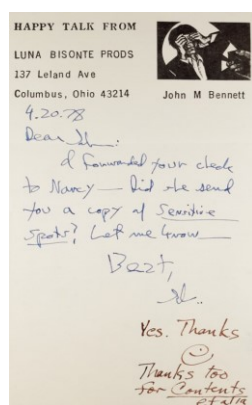 HAPPY TALK FROM
LUNA BISONTE PRODS
137 Leland Ave
Columbus, Ohio 43214
John M Bennett
4.20.78
Dear
I forwarded your check
to Nancy — Did she send
you a copy of Sensitive
Spots? Let me know —
Best,
Yes. Thanks
Thanks too
for Contents